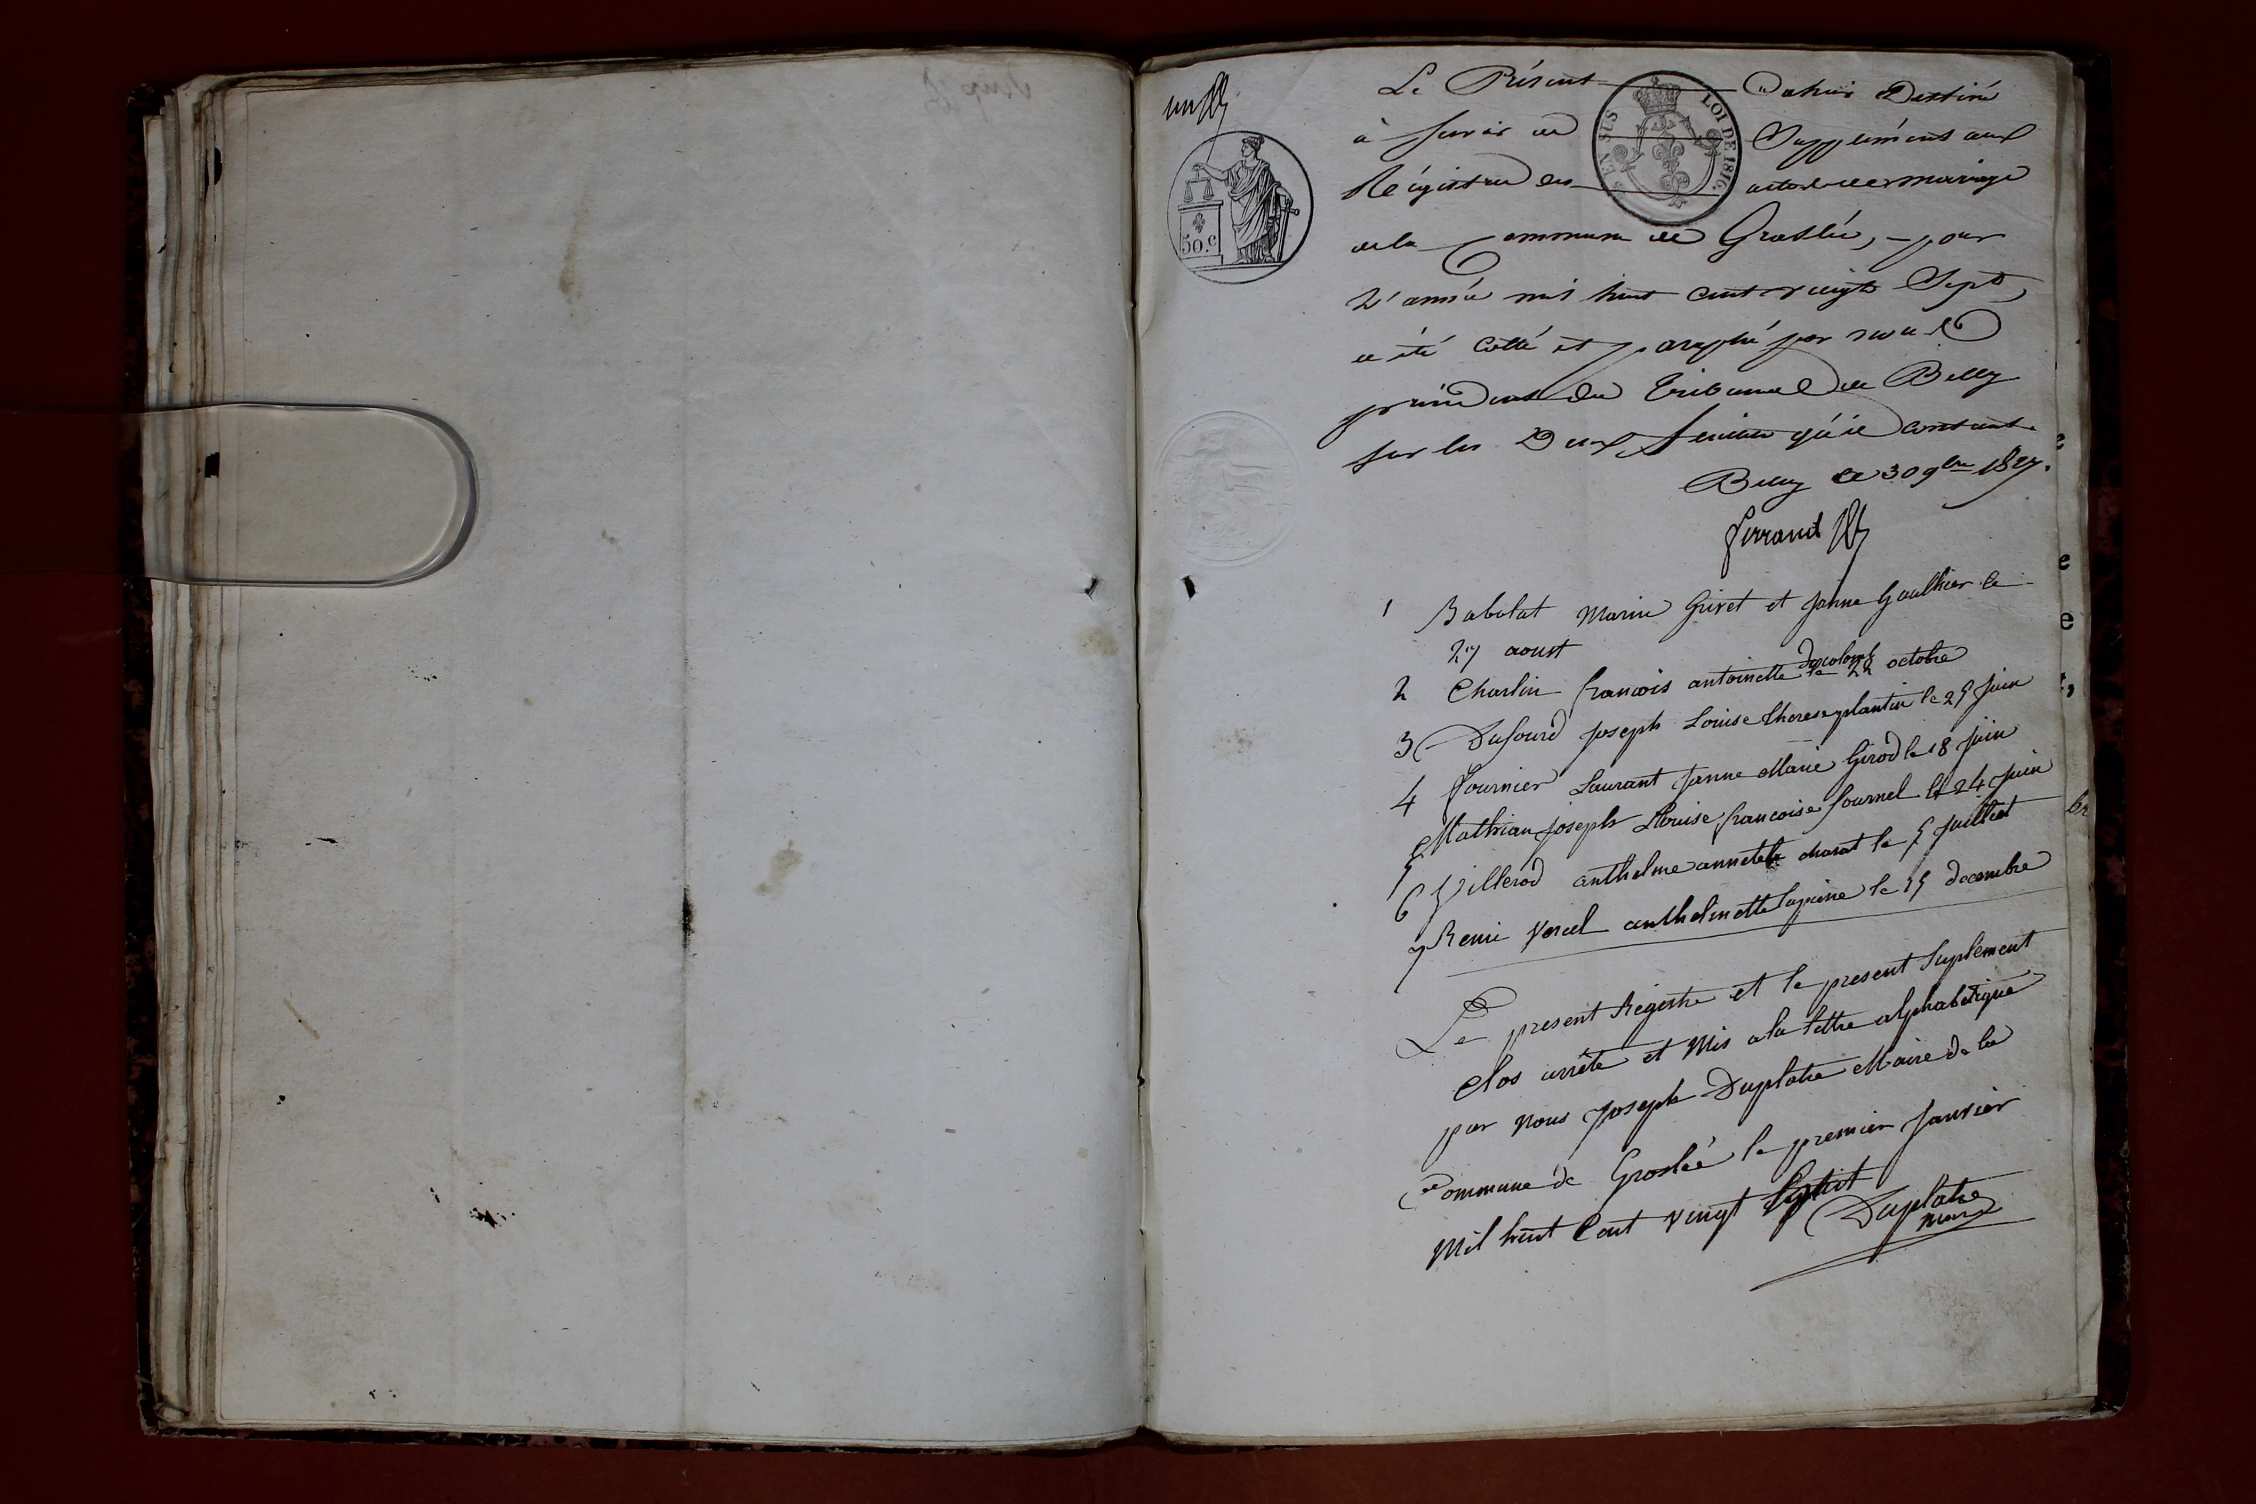 un
50.c
EN SUS
LOI DE 1816.
Le Présent Cahier Destiné
à servir de Supplément aux
Régistres des actes de mariage
de la Commune de Groslée, pour
L'année mil huit cent vingt Sept,
a été cotté et paraphé par nous
président du Tribunal de Belley
sur les Deux feuilles qu'il contient.
Belley le 30 9bre 1827.
Ferrand
1 Babolat Marin Grivet et Janne Gaulthier le
27 aoust
2 Charlin francois antoinette Decolomb le 22 octobre
3 Dufourd Joseph Louise therese plantin le 25 Juin
4 Fournier Laurant Janne Marie Girod le 18 Juin
5 Mathian Joseph Louise francoise fournel le 24 Juin
6 Villerod anthelme annette charat le 5 Juilliet
7 Remi Vercel anthelmette lapine le 15 decembre
Le present Regestre et le present Suplement
Clos arrête et Mis a la lettre alphabétique
par nous Joseph Duplatre Maire de la
Commune de Groslée le premier Janvier
Mil huit Cent vingt huit
Duplatre
maire